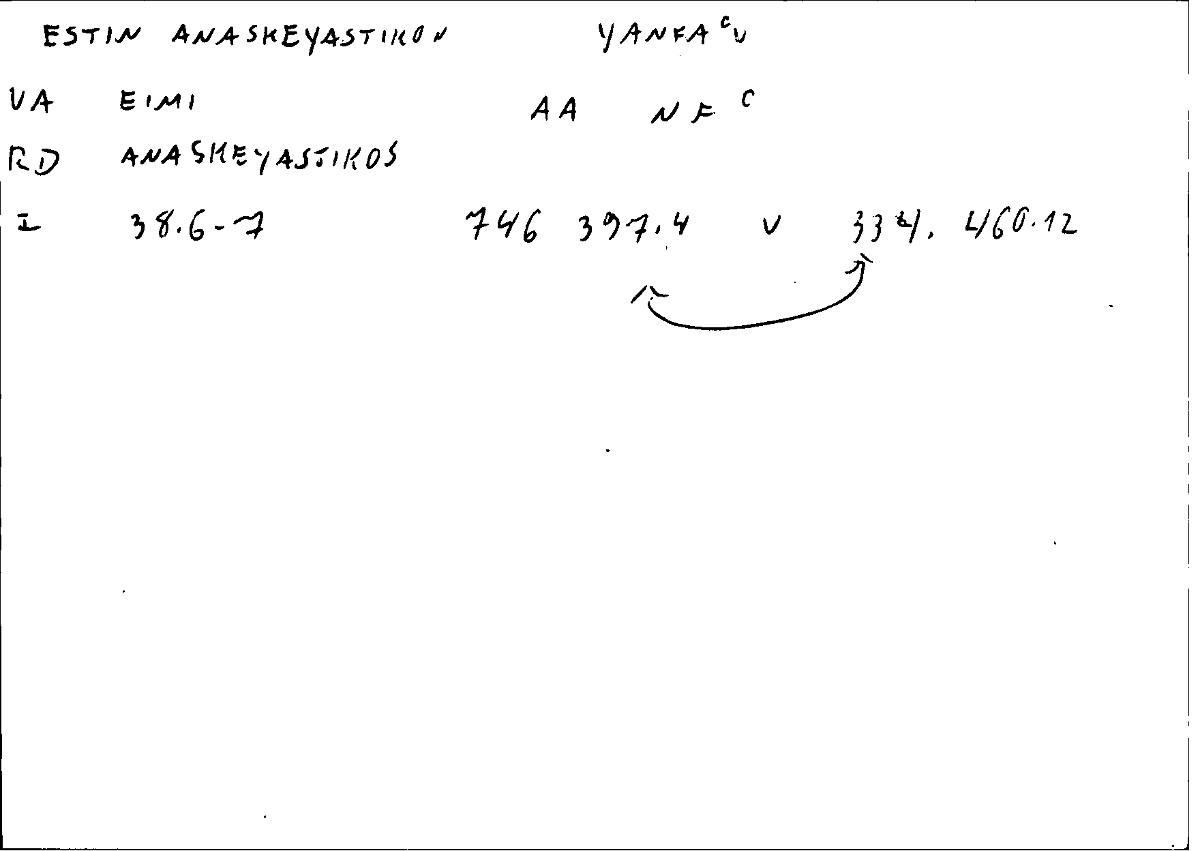 ESTIN ANASKEYASTIKON YANFA^c v
VA EIMI AA NF^c
RD ANASKEYASTIKOS
I 38.6-7 746 397.4 v 334. 460.12